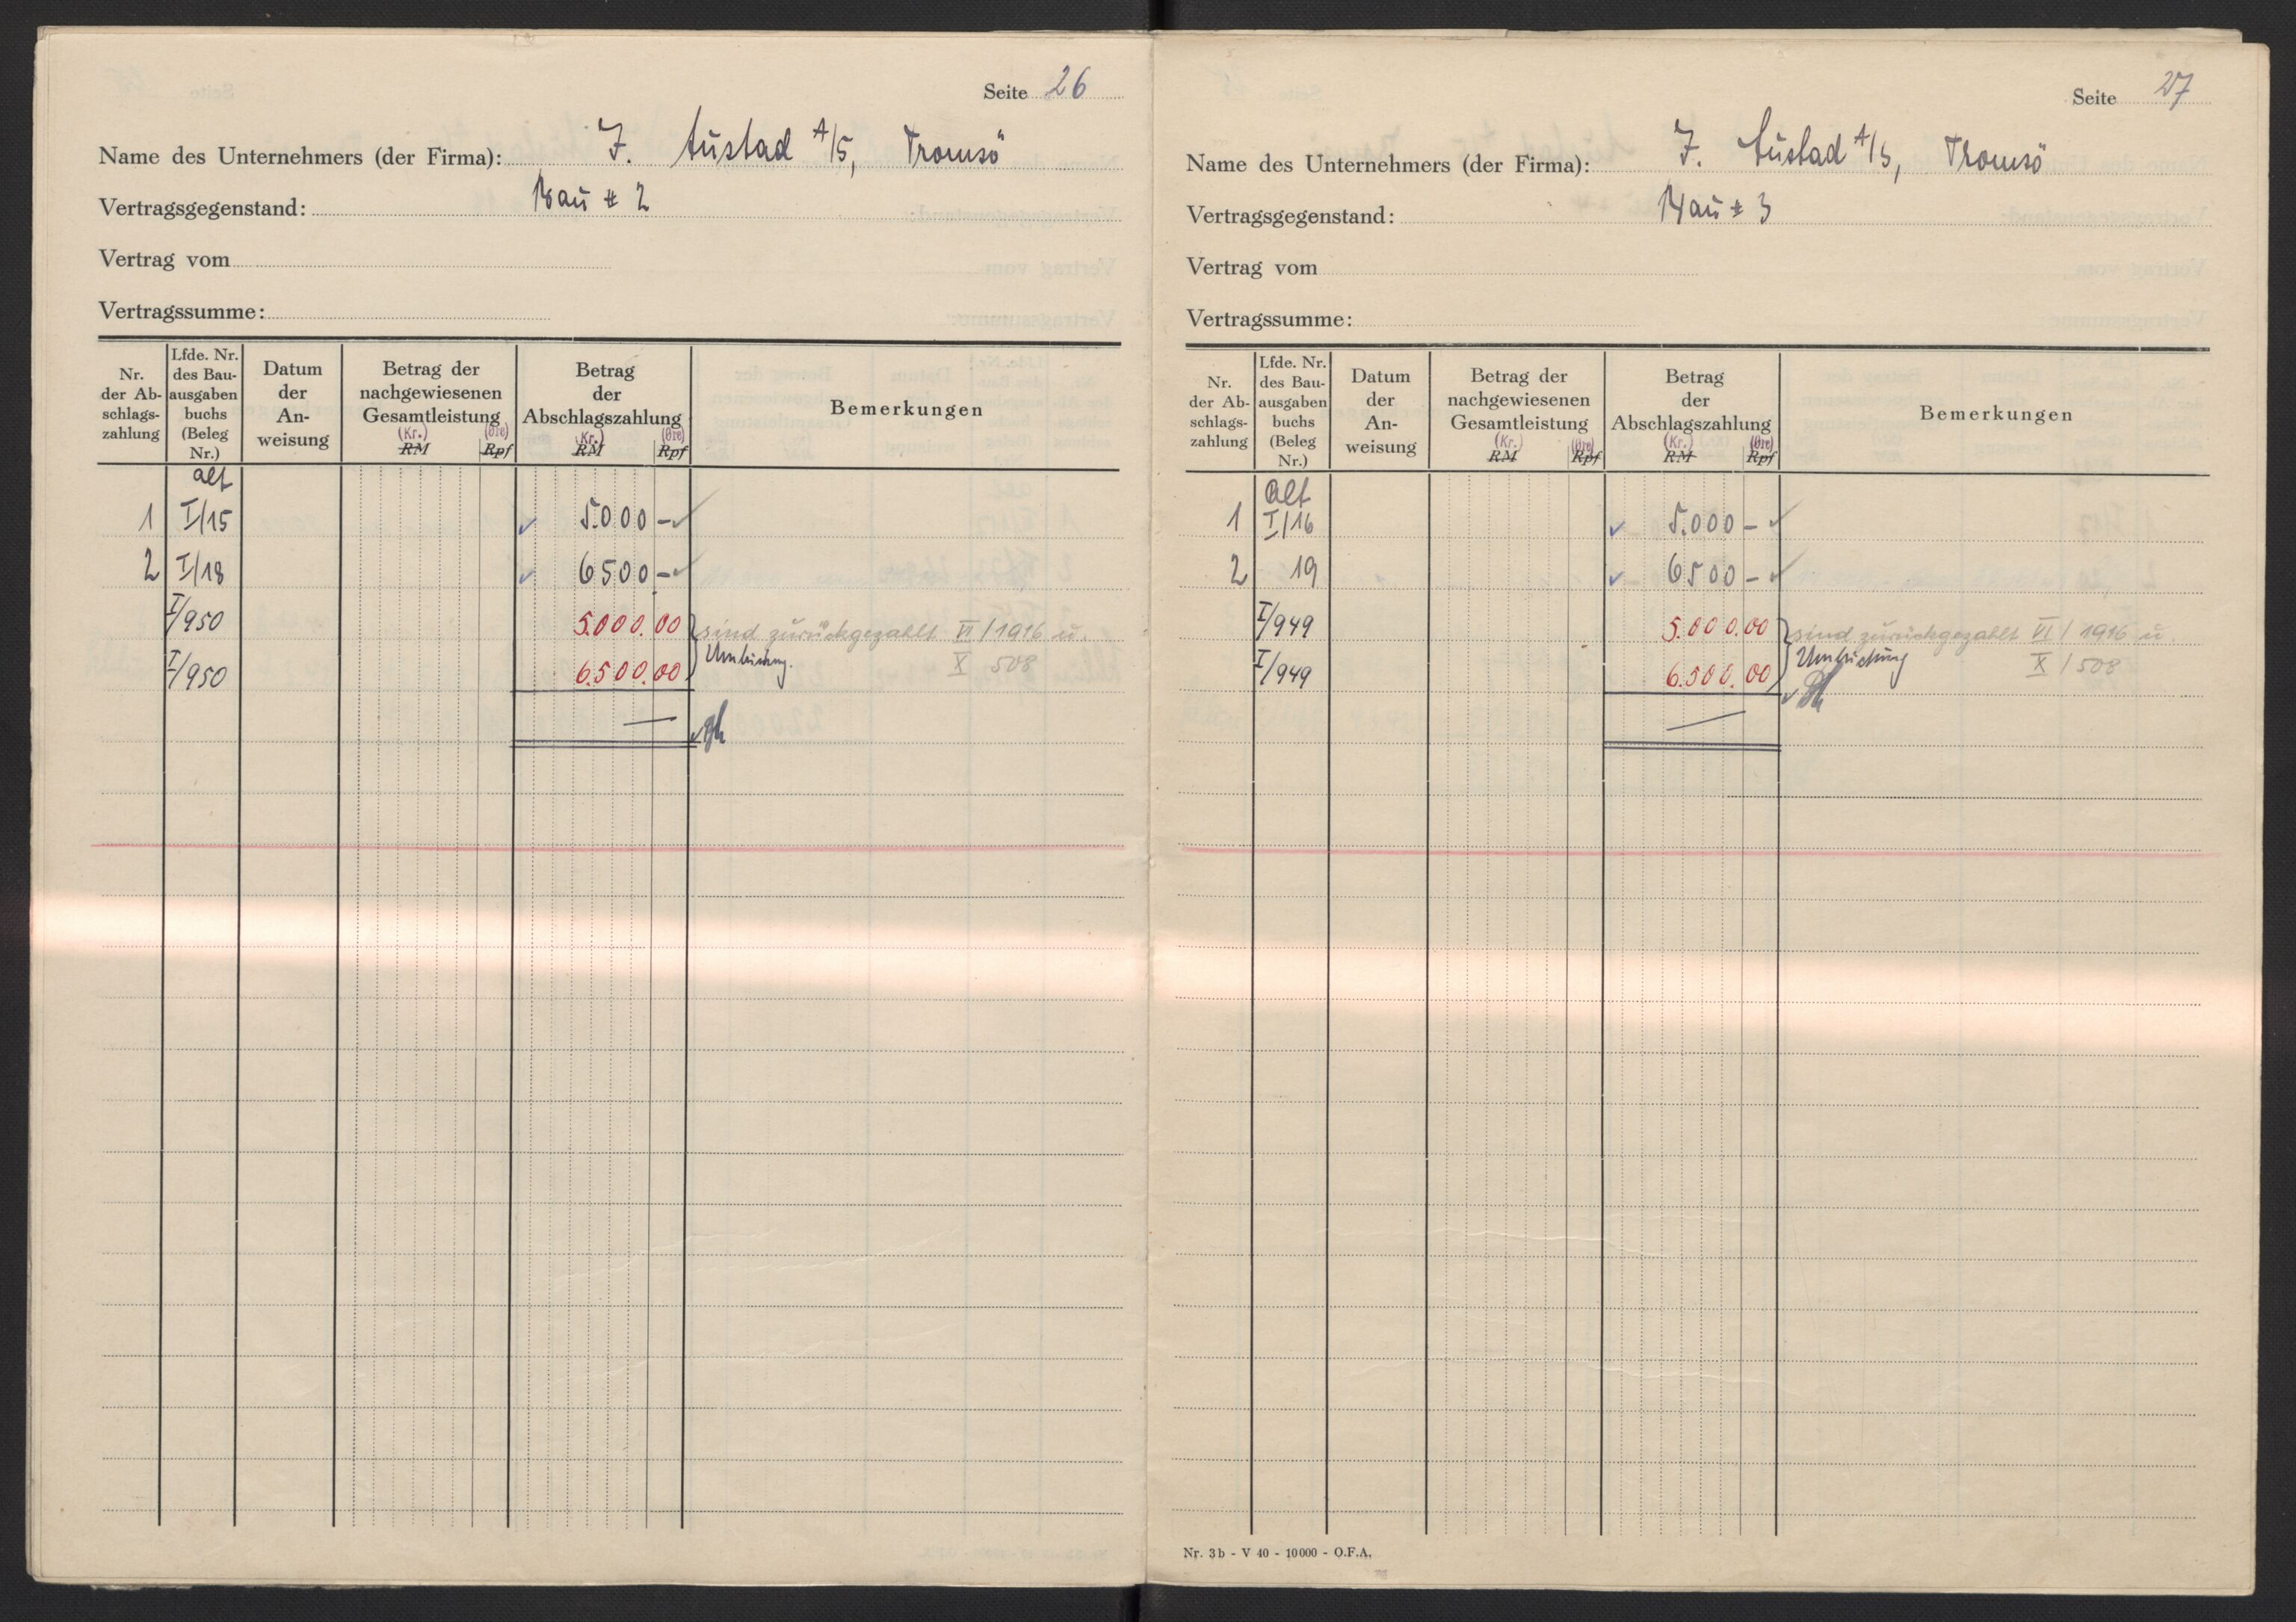 Seite 26
Name des Unternehmers (der Firma): J. Aústad A/S, Tromsö
Vertragsgegenstand: Baú # 2
Vertrag vom
Vertragssumme:
Nr. der Ab-schlags-zahlung | Lfde. Nr. des Bau-ausgaben buchs (Beleg Nr.) | Datum der An-weisung | Betrag der nachgewiesenen Gesamtleistung (Kr.) RM (Øre) Rpf | Betrag der Abschlagszahlung (Kr.) RM (Øre) Rpf | Bemerkungen
alt
1 I/15 ✓ 5.000 – ✓
2 I/18 ✓ 6500 – ✓
I/950 5.000.00 sind zurückgezahlt VI/1916 u.
Umbuchung. X 508
I/950 6.500.00
—
Seite 27
Name des Unternehmers (der Firma): J. Aústad A/S, Tromsö
Vertragsgegenstand: Baú # 3
Vertrag vom
Vertragssumme:
Nr. der Ab-schlags-zahlung | Lfde. Nr. des Bau-ausgaben buchs (Beleg Nr.) | Datum der An-weisung | Betrag der nachgewiesenen Gesamtleistung (Kr.) RM (Øre) Rpf | Betrag der Abschlagszahlung (Kr.) RM (Øre) Rpf | Bemerkungen
alt
1 I/16 ✓ 5.000 – ✓
2 19 ✓ 6500 – ✓
I/949 5.000.00 sind zurückgezahlt VI/1916 u.
Umbuchung X/508
I/949 6.500.00
—
Nr. 3b - V 40 - 10000 - O.F.A.